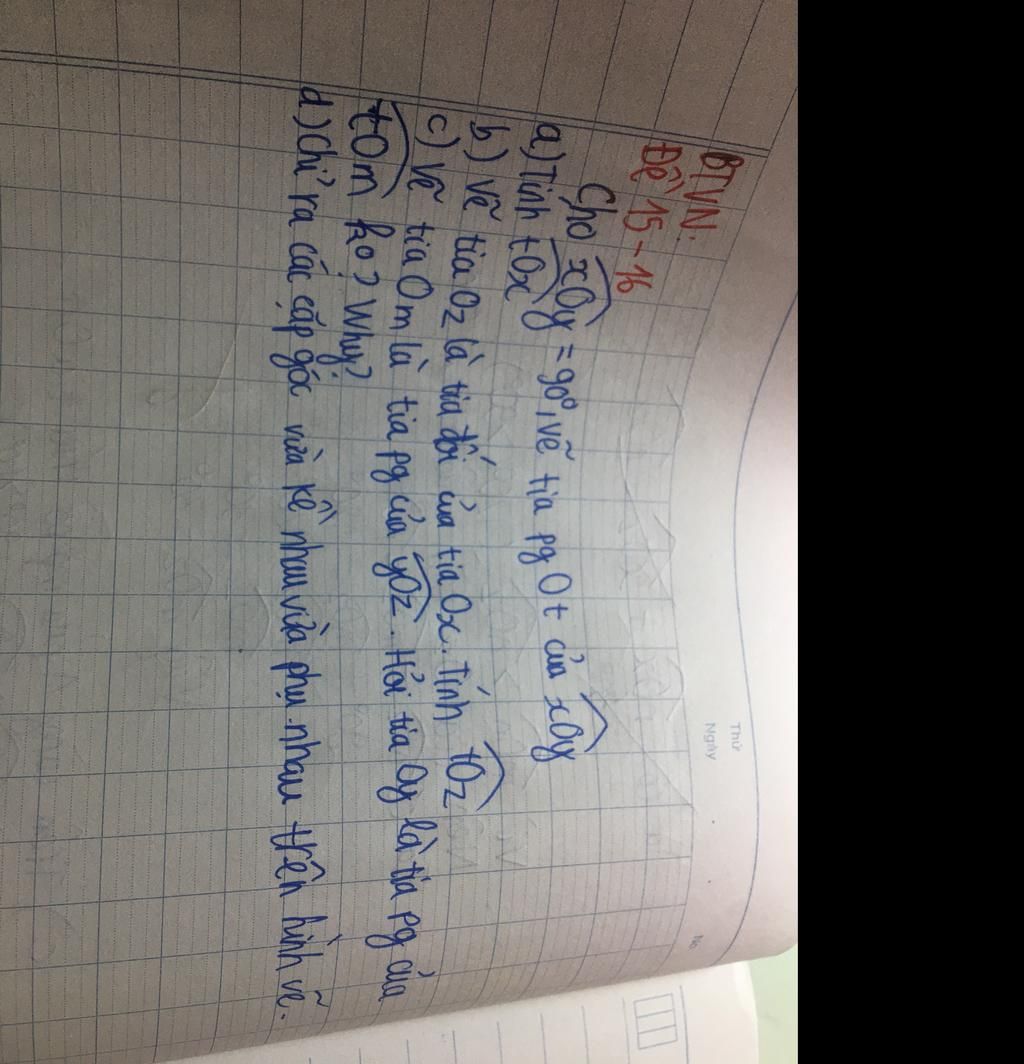 Thứ
Ngày
No
BTVN:
Đề 15-16
Cho xOy = 90⁰, vẽ tia pg Ot của xOy
a) Tính tOx
b) Vẽ tia Oz là tia đối của tia Ox. Tính tOz
c) Vẽ tia Om là tia pg của yOz. Hỏi tia Oy là tia pg của
tOm ko? Why?
d) Chỉ ra các cặp góc vừa kề nhau vừa phụ nhau trên hình vẽ.